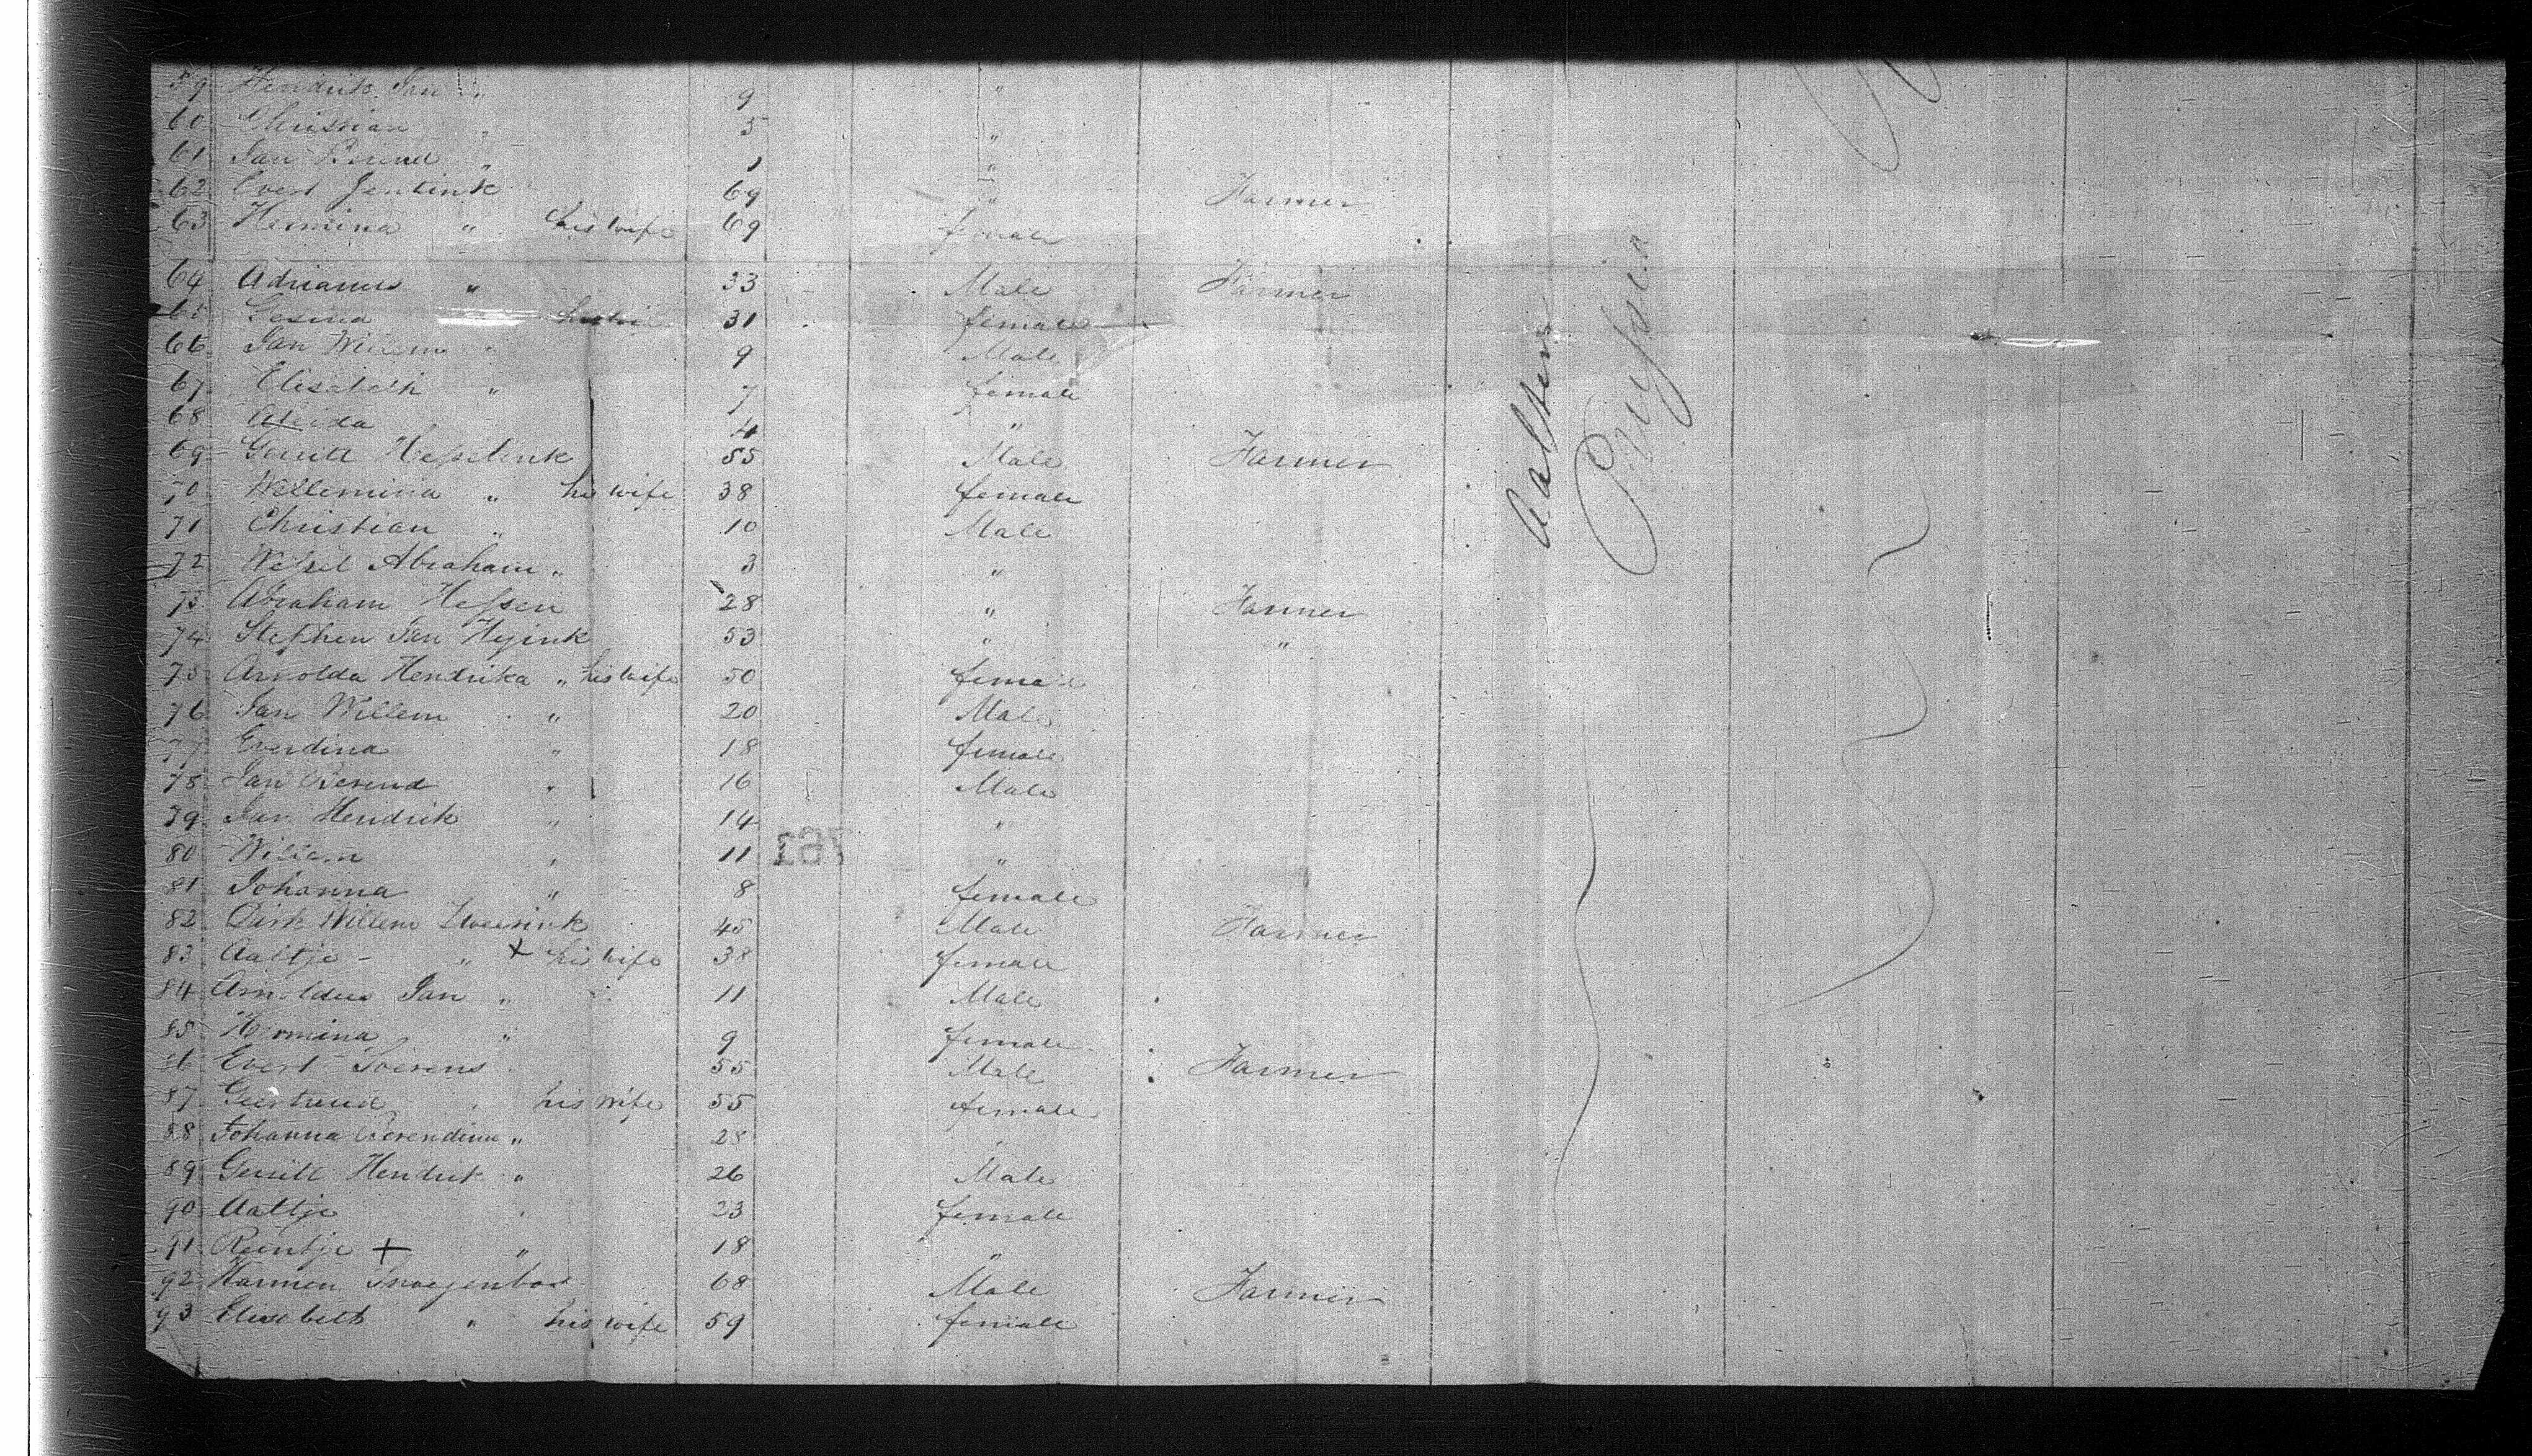 59 Hendrik Jan " 9 "
60 Christian " 5 "
61 Jan Berend " 1 "
62 Evert Jentink 69 " Farmer
63 Hermina " his wife 69 female
64 Adrianus " 33 Male Farmer
65 Gesina his wife 31 female
66 Jan Willem " 9 Male
67 Elisabeth " 7 female
68 Aleida 4 "
69 Gerritt Hesselink 55 Male Farmer
70 Willemina " his wife 38 female
71 Christian " 10 Male
72 Wessel Abraham " 3 "
73 Abraham Hessen 28 " Farmer
74 Stephen Jan Heyink 53 " "
75 Arnolda Hendrika " his wife 50 female
76 Jan Willem " 20 Male
77 Everdina " 18 female
78 Jan Berend " 16 Male
79 Jan Hendrik " 14 "
80 Willem " 11 "
81 Johanna " 8 female
82 Dirk Willem 45 Male Farmer
83 Aaltje - " + his wife 38 female
84 Arnoldus Jan " 11 Male
85 Hermina " 9 female
86 Evert 55 Male Farmer
87 Geertruid " his wife 55 female
88 Johanna Berendina " 28 "
89 Gerritt Hendrik " 26 Male
90 Aaltje " 23 female
91 Reintje + " 18 "
92 Harmen 68 Male Farmer
93 Elisabeth " his wife 59 female
Aalten
Prussen
761